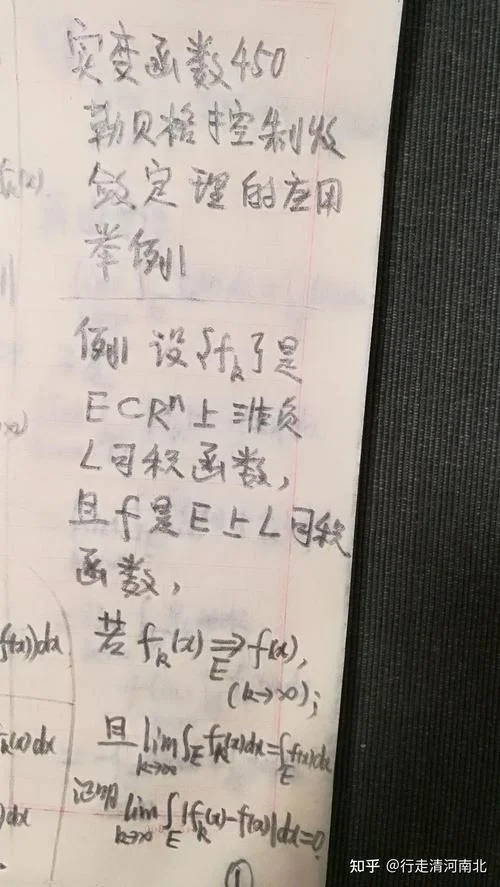 实变函数450
勒贝格控制收
敛定理的应用
举例1
例1 设{fₖ}是
E⊂Rⁿ上非负
L可积函数,
且f是E上L可积
函数,
若 fₖ(x) ⇉_E f(x),
(k→∞);
且lim_{k→∞}∫_E fₖ(x)dx=∫_E f(x)dx
证明 lim_{k→∞}∫_E|fₖ(x)-f(x)|dx=0.
①
f(x))dx
(x)dx
)dx
知乎 @行走清河南北